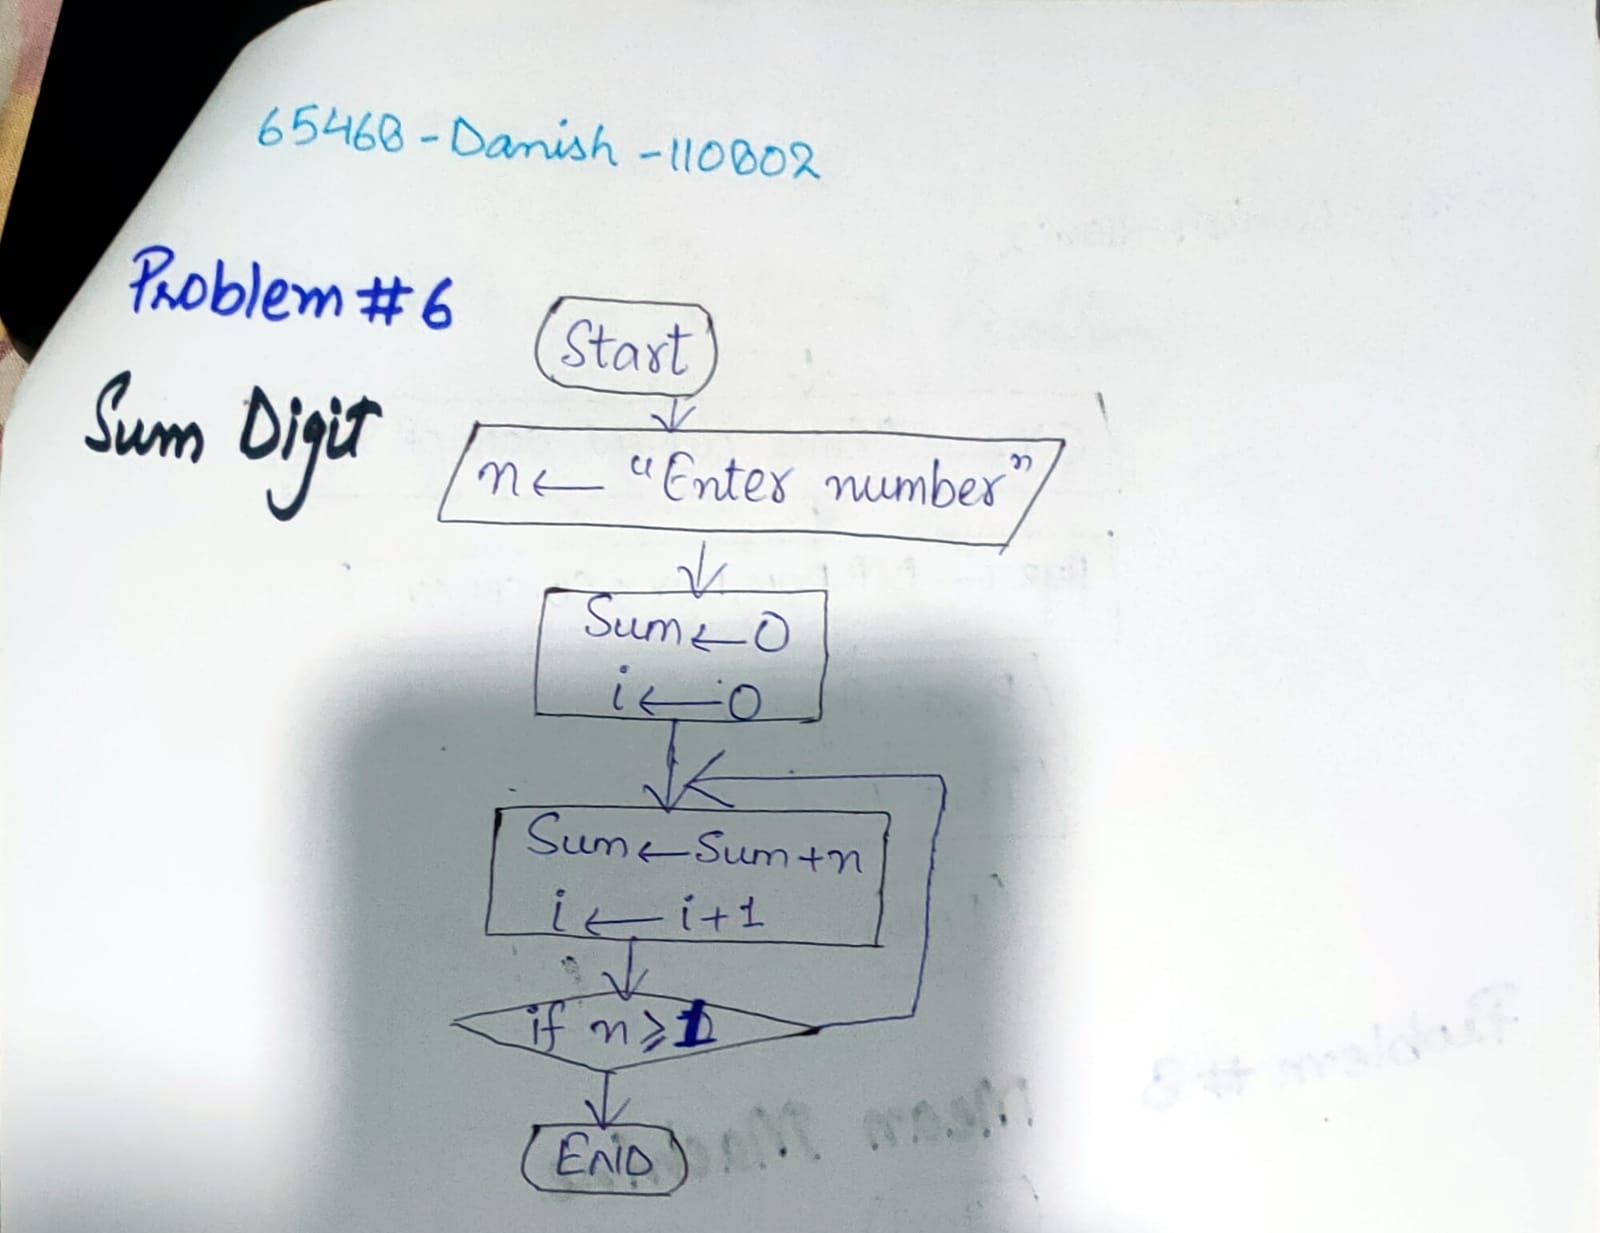 65468-Danish-110802
Problem #6
Sum Digit
Start
n ← "Enter number"
Sum ← 0
i ← 0
Sum ← Sum + n
i ← i + 1
if n ≥ 1
END